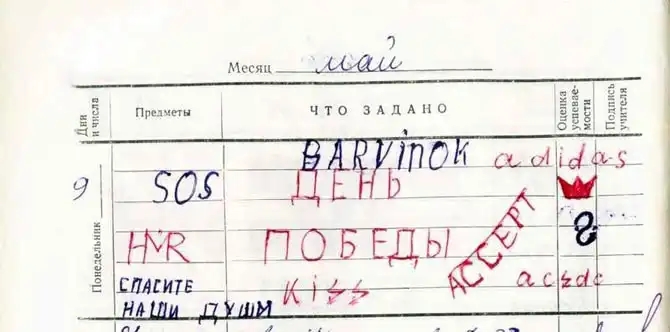 Месяц май
Дни и числа
Предметы
ЧТО ЗАДАНО
Оценка успеваемости
Подпись учителя
Понедельник
9
BARVINOK adidas
SOS ДЕНЬ
HMR ПОБЕДЫ ACCEPT
СПАСИТЕ KISS acdc
НАШИ ДУШЫ